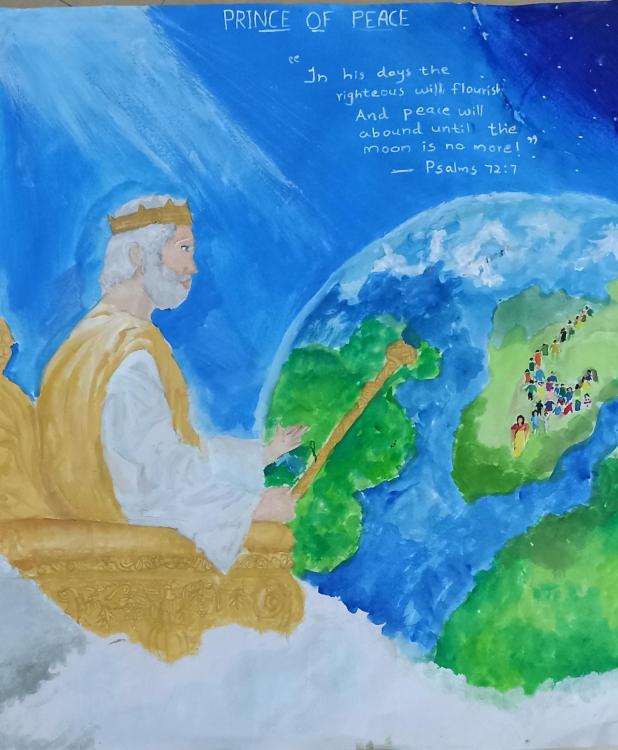 PRINCE OF PEACE
"In his days the
righteous will flourish
And peace will
abound until the
moon is no more!"
— Psalms 72:7